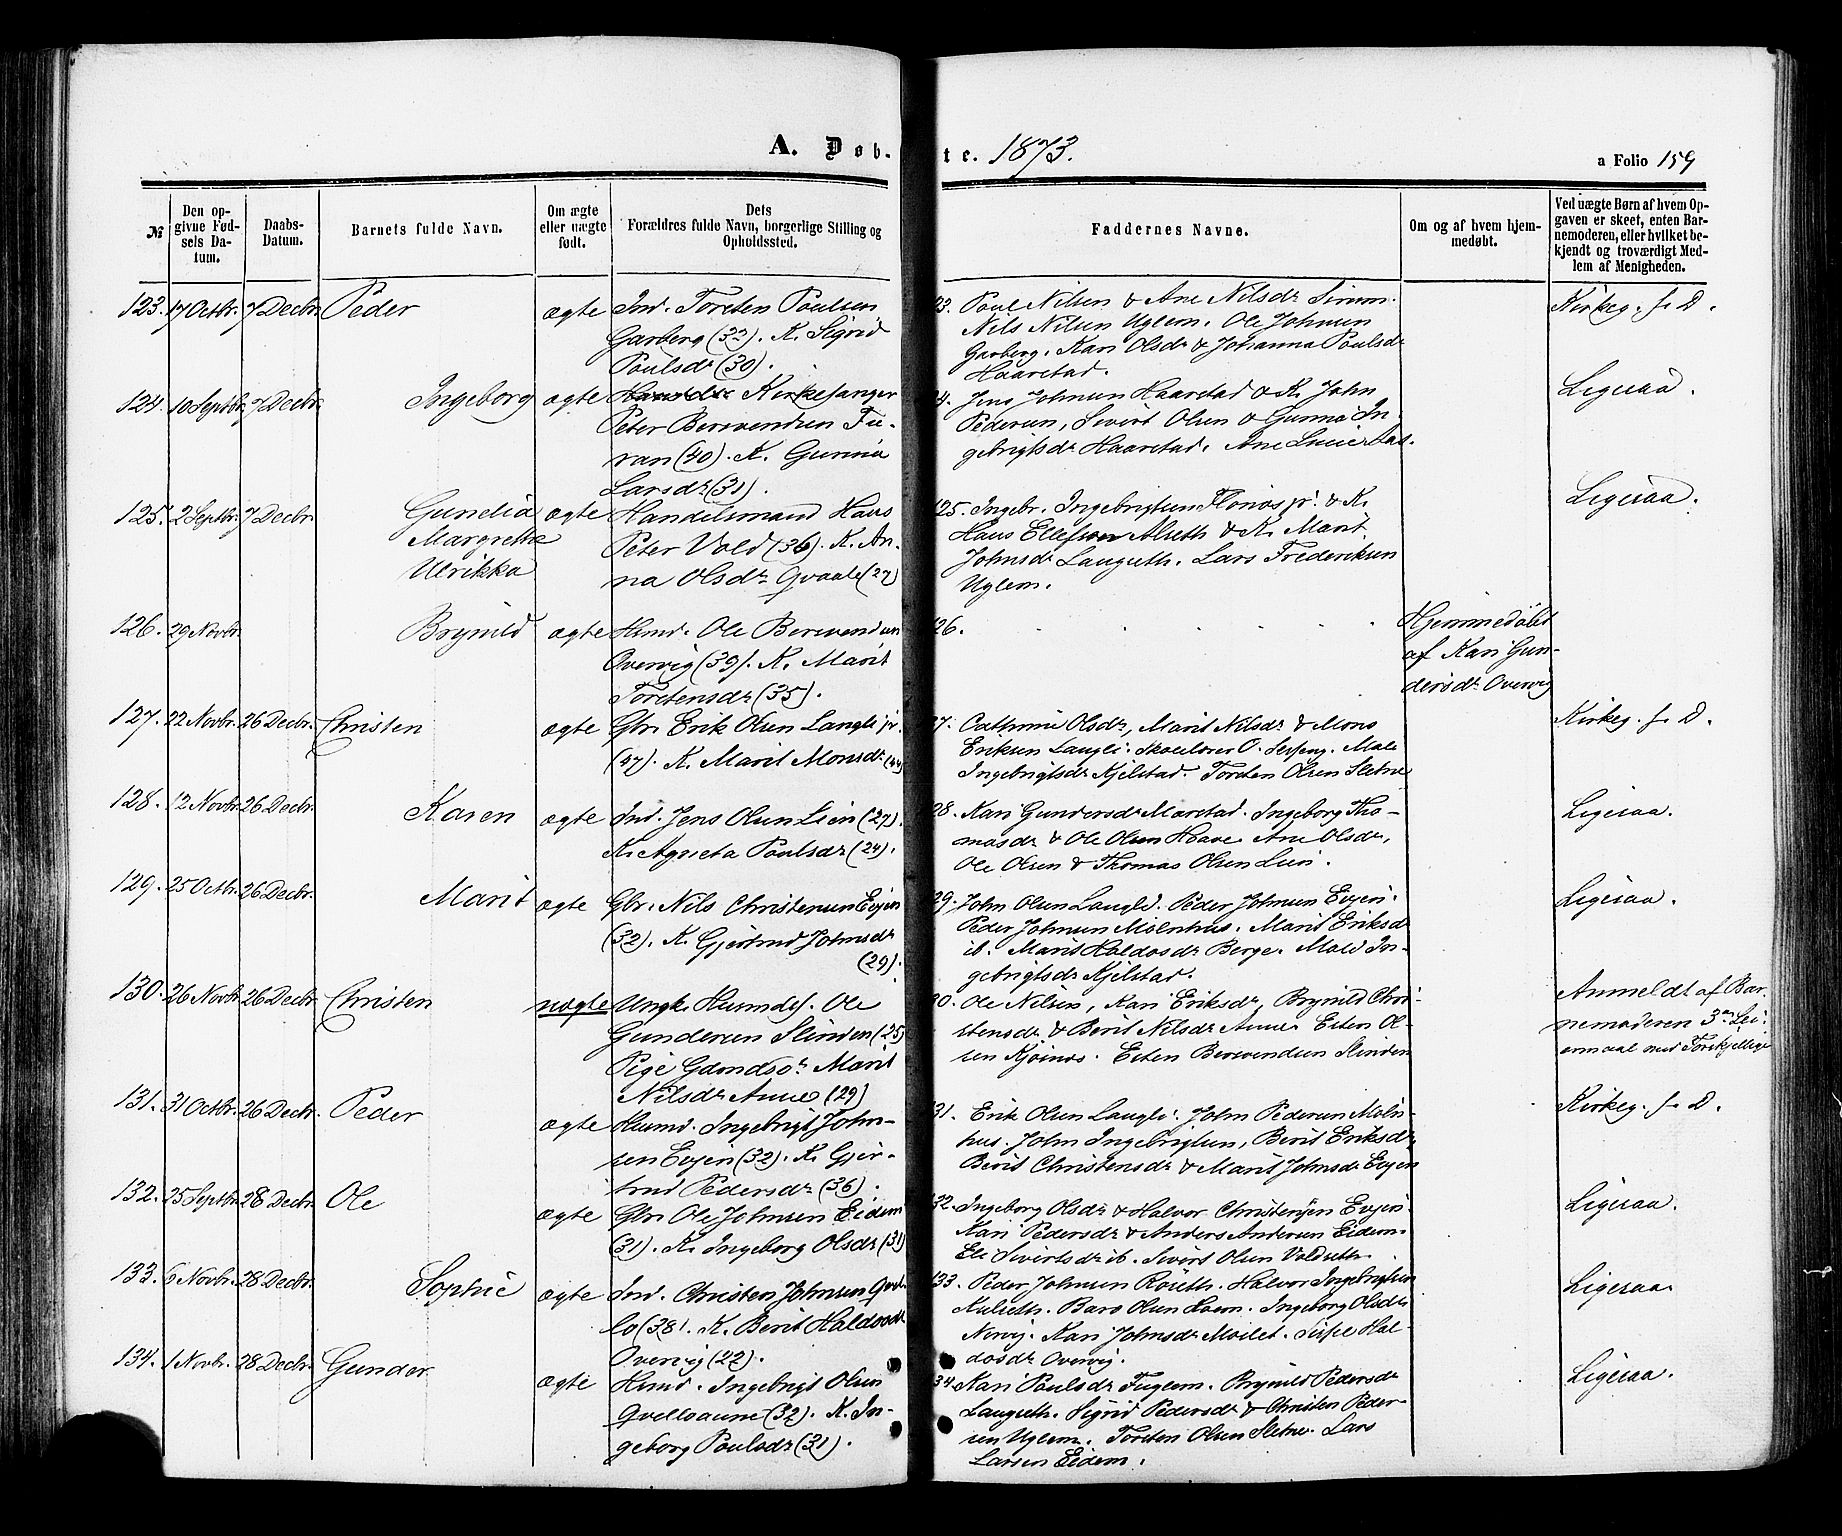 A. Døb.
te. 1873.
a Folio 159
№
Den opgivne Fødsels Datum.
Daabs-Datum.
Barnets fulde Navn.
Om ægte eller uægte født.
Dets Forældres fulde Navn, borgerlige Stilling og Opholdssted.
Faddernes Navne.
Om og af hvem hjemmedøbt.
Ved uægte Børn af hvem Opgaven er skeet, enten Barnemoderen, eller hvilket bekjendt og troværdigt Medlem af Menigheden.
123. 17 Octbr. 7 Decbr. Peder ægte Ind. Torsten Poulsen
Garberg (32). K. Sigrid
Poulsdr (30).
23. Poul Nilsen & Ane Nilsdr
Nils Nilsen Uglem. Ole Johnsen
Garberg. Kari Olsdr & Johanna Poulsdr
Haarstad.
Kirkeg. f. D.
124. 10 Septbr. 7 Decbr. Ingeborg ægte Kirkesanger
Peter Berevendsen Fu-
ran (40). K. Gunnil
Larsdr (31).
4. Jens Johnsen Haarstad & K. John
Pedersen, Sivert Olsen & Gunnil In-
gebrigtsdr Haarstad. Ane
Ligesaa.
125. 2 Septbr. 7 Decbr. Gunelia ægte Handelsmand Hans
Margrethe Peter Vold (36). K. An-
Ulrikka na Olsdr Qvaale (27)
125. Ingebr. Ingebrigtsen Moenes jr. & K.
Hans Ellefsen Alseth & K. Marit
Johnsdr Langseth. Lars Frederiksen
Uglem.
Ligesaa.
126. 29 Novbr. Brynild ægte Husmd. Ole Berevendsen
Overvig (39). K. Marit
Torstensdr (35).
26.
Hjemmedøbt
af Kari Gun-
dersdr Overvig
127. 22 Novbr. 26 Decbr. Christen ægte Gbr. Erik Olsen Langli jr.
(47). K. Marit Monsdr (44)
27. Cathrine Olsdr, Marit Nilsdr & Mons
Eriksen Langli. Skolelærer O. Male
Ingebrigtsdr Kjelstad. Torsten Olsen Sletne
Kirkeg. f. D.
128. 12 Novbr. 26 Decbr. Karen ægte Ind. Jens Olsen Lien (27).
K. Agneta Poulsdr (24).
28. Kari Gundersdr Marstad. Ingeborg Tho-
masdr & Ole Olsen Haave. Ane Olsdr,
Ole Olsen & Thomas Olsen Lien.
Ligesaa.
129. 25 Octbr. 26 Decbr. Marit ægte Gbr. Nils Christensen Evjen
(32). K. Gjertrud Johnsdr
(29).
29. John Olsen Langli. Peder Johnsen Evjen.
Peder Johnsen Molnhus. Marit Eriksdr
ib. Marit Haldosdr Berge. Male In-
gebrigtsdr Kjelstad.
Ligesaa.
130. 26 Novbr. 26 Decbr. Christen uægte Ungk. Husmds. Ole
Gundersen Slinden (25)
Pige Gdmdsdr. Marit
Nilsdr Aune (29)
30. Ole Nilsen, Kari Eriksdr, Brynild Chri-
stensdr & Berit Nilsdr Aune. Esten Ol-
sen Kjøsnes. Esten Berevendsen Slinden
Anmeldt af Bar-
nemoderen 3die Lei-
ermaal med Forskjellige
131. 31 Octbr. 26 Decbr. Peder ægte Husmd. Ingebrigt John-
sen Evjen (32). K. Gjer-
trud Pedersdr (36).
31. Erik Olsen Langli. John Pedersen Moln-
hus. John Ingebrigtsen, Berit Eriksdr,
Berit Christensdr & Marit Johnsdr Evjen
Kirkeg. f. D.
132. 25 Septbr. 28 Decbr. Ole ægte Gbr. Ole Johnsen Eidem
(31). K. Ingeborg Olsdr (31)
32. Ingeborg Olsdr & Halvor Christensen Evjen.
Kari Pedersdr & Anders Andersen Eidem.
Eli Sivertsdr ib. Sivert Olsen Voldseth.
Ligesaa.
133. 6 Novbr. 28 Decbr. Sophie ægte Ind. Christen Johnsen Qvel-
lo (38). K. Berit Haldosdr
Overvig (22).
133. Peder Johnsen Røseth. Halvor Ingebrigtsen
Kulseth. Baro Olsen Moen. Ingeborg Olsdr
Nervig. Kari Johnsdr Moslet. Hal-
dosdr Overvig.
Ligesaa
134. 1 Novbr. 28 Decbr. Gunder ægte Husmd. Ingebrigt Olsen
Qvellosaune (32). K. In-
geborg Poulsdr (31).
34 Kari Poulsdr Fuglem. Brynild Pedersdr
Langseth. Sigrid Pedersdr & Christen Peder-
sen Uglem. Torsten Olsen Sletne. Lars
Larsen Eidem.
Ligesaa.